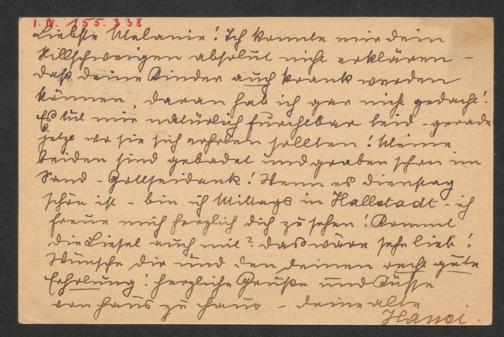 I.N. 155.338
Liebste Melanie! Ich konnte mir dein
Stillschweigen absolut nicht erklären –
daß deine Kinder auch krank werden
können, daran hab ich gar nicht gedacht!
Es tut mir natürlich furchtbar leid – gerade
jetzt wo sie sich erholen sollten! Meine
beiden sind gebadet und graben schon im
Sand – Gottseidank! Wenn es Dienstag
schön ist – bin ich Mittags in Hallstadt – ich
freue mich herzlich dich zu sehen! Kommt
die Liesel auch mit? das wäre sehr lieb!
Wünsche dir und den deinen recht gute
Erholung! herzliche Grüße und Küsse
von Haus zu Haus – deine alte
Hansi.